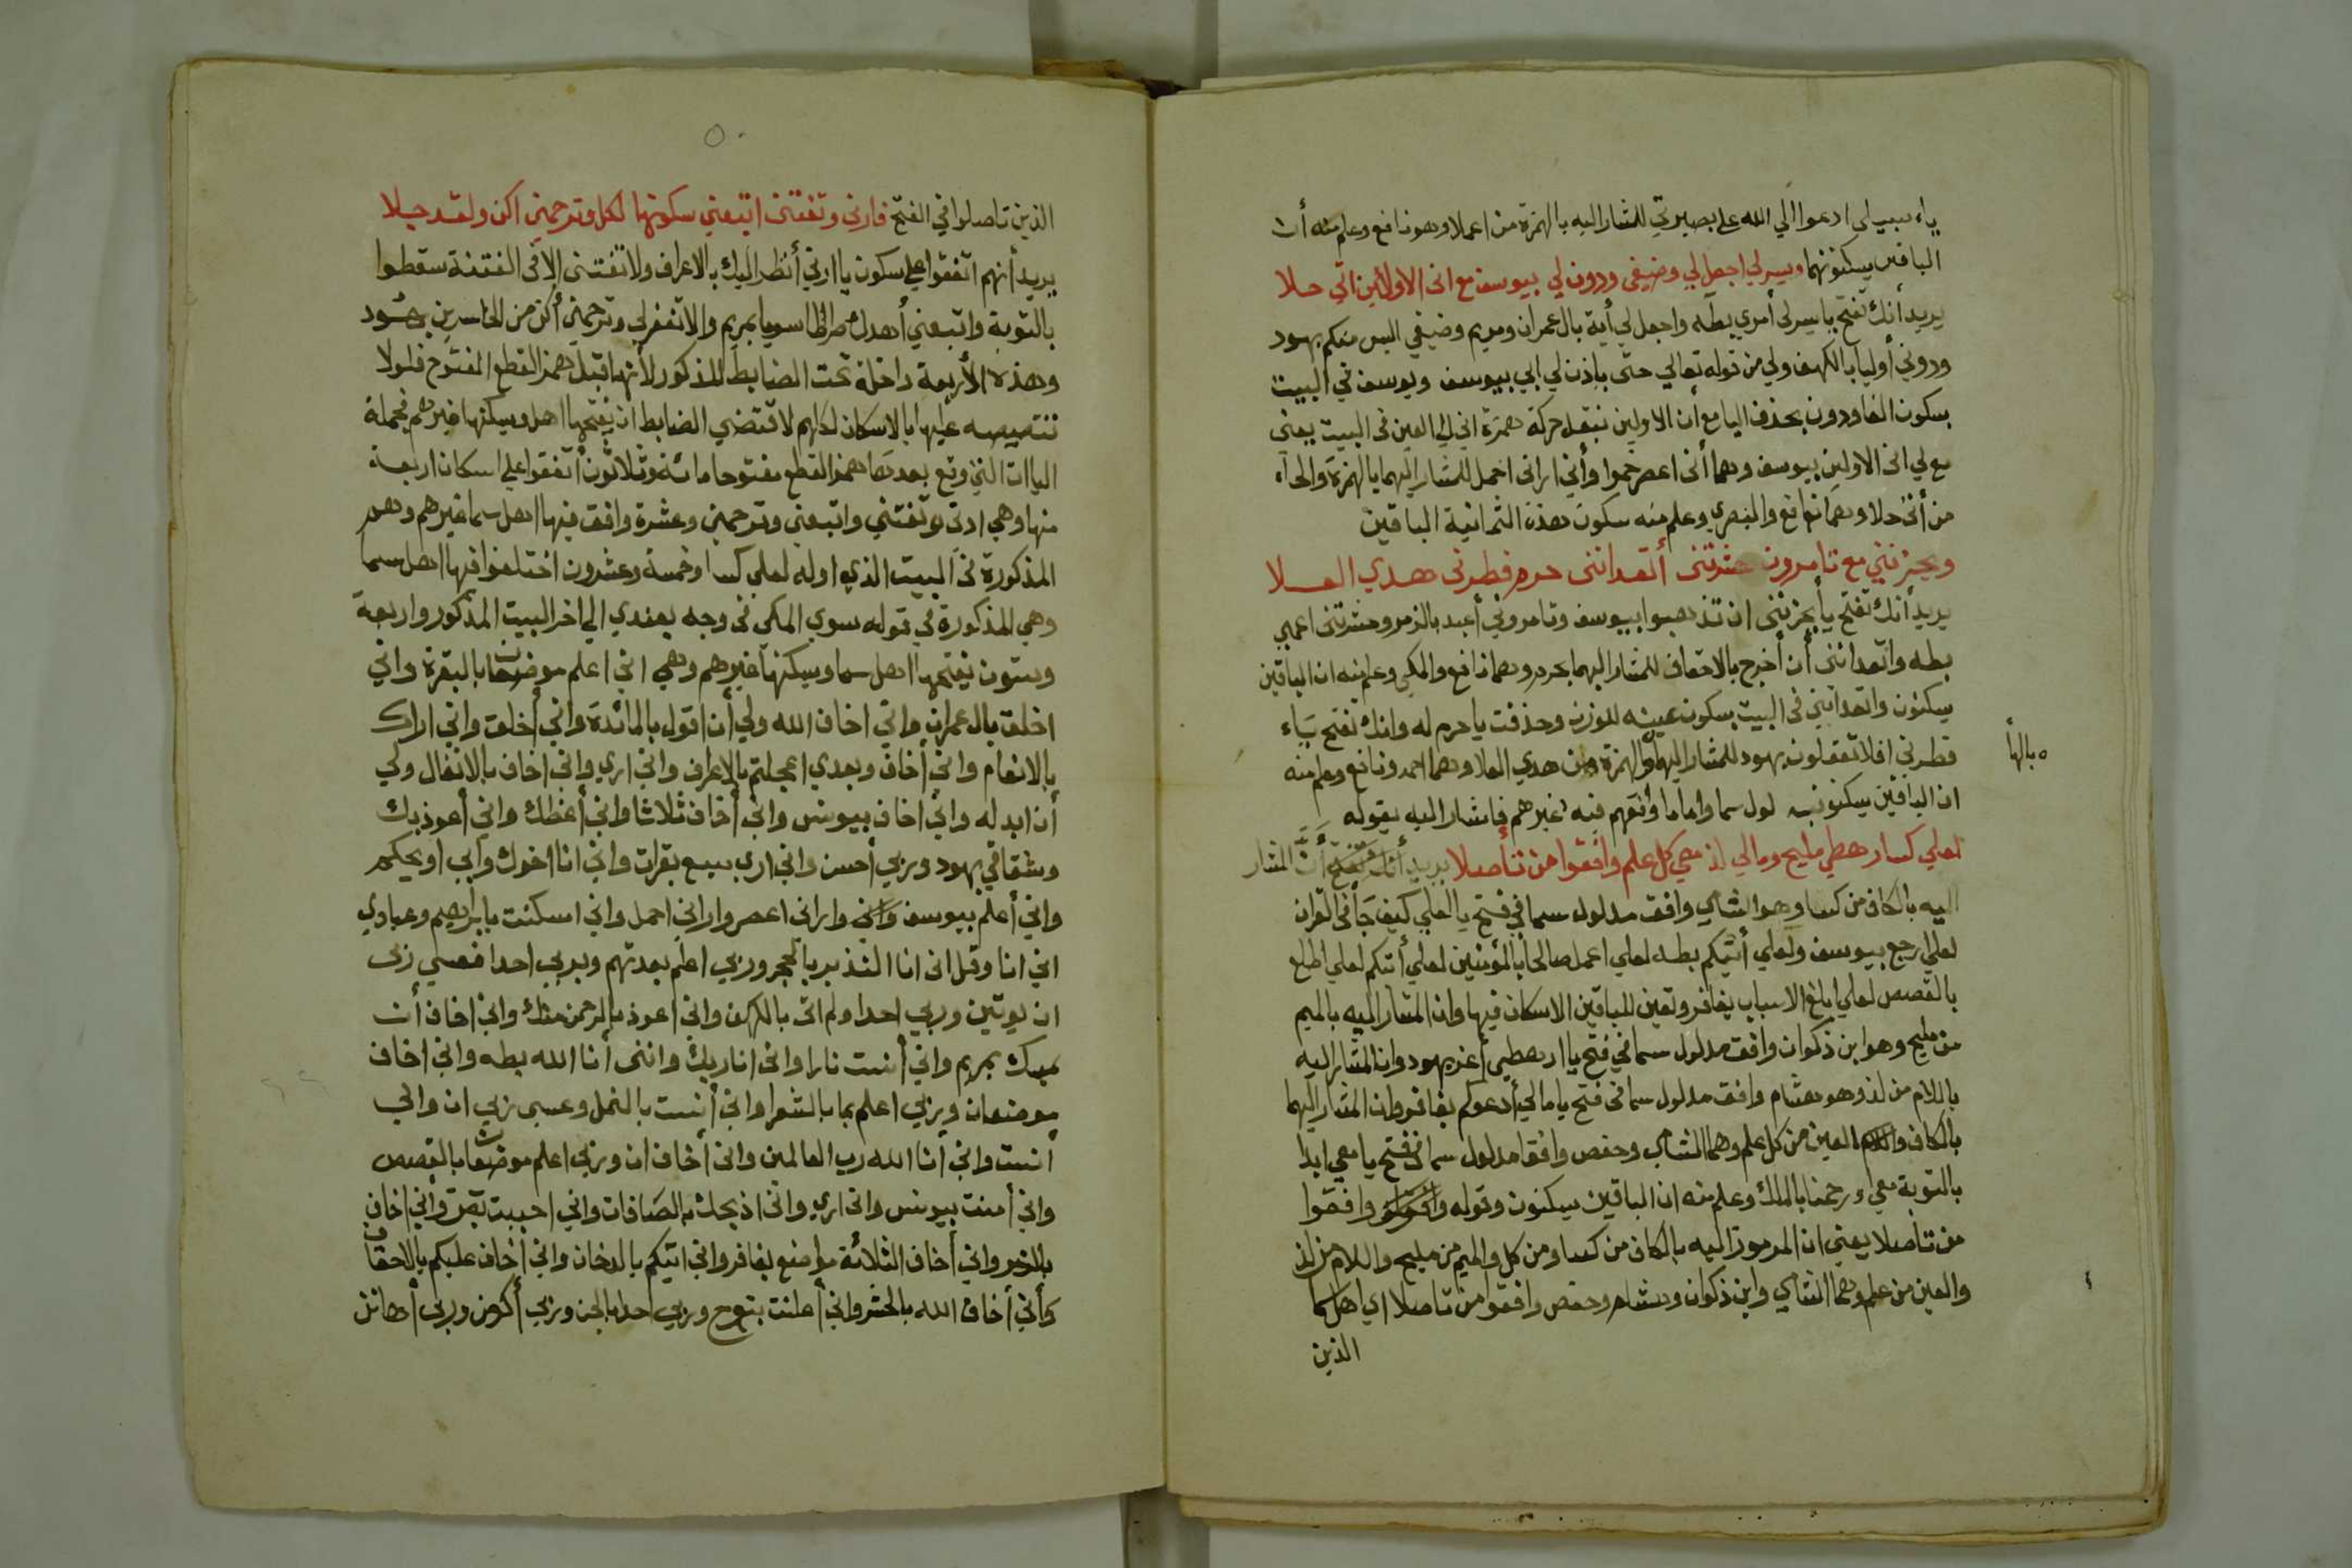 ياء سبيلي ادعوا الي الله علي بصيرتي للمشار اليه بالهمزة من اعملا وهو نافع وعلم منه أن
الباقين يسكنونها ويسر لي اجعل لي وضيفي ودوني لي بيوسف مع اني الاولين اني حلا
يريد أنك تفتح يا يسر لي أمري بطه واجعل لي أية بال عمران ومريم وضيفي اليس منكم بهود
ودوني أوليا بالكهف ولي من قوله تعالي حتي ياذن لي ابي بيوسف ويوسف في البيت
بسكون الفا ودون بحذف اليا مع أن الاولين بنقل حركة همزة اني الي العين في البيت يعني
مع لي اني الاولين بيوسف وهما أني اعصر خمرا وأني اراني احمل للمشار اليهما بالهمزة والحاء
من أني حلا وهما نافع والبصري وعلم منه سكون هذه الثمانية الباقين
ويحزنني مع تامروني حشرتني أتعدانني حرم فطرني هدي العلا
يريد أنك تفتح يا يحزنني ان تذهبوا بيوسف وتامروني أعبد بالزمر وحشرتني اعمي
بطه واتعدانني أن أخرج بالاحقاف للمشار اليهما بحرم وهما نافع والمكي وعلم منه ان الباقين
يسكنون واتعدانني في البيت بسكون عينه للوزن وحذفت يا حرم له وانك تفتح ياء
فطرني افلا تعقلون بهود للمشار اليهما والهمزة من هدي العلا وهما احمد ونافع وعلم منه
ه بالها
ان الباقين يسكنونه لول سما واما ما وافقهم فيه غيرهم فاشار اليه بقوله
لعلي كسا رهطي مليح ومالي لذ معي كل علم وافقوا من تأصلا يريد أنك تفتح أن المشار
اليه بالكاف من كسا وهو الشامي وافق مدلول سما في فتح يا لعلي كيف جأ في القران
لعلي ارجع بيوسف ولعلي أتيكم بطه لعلي اعمل صالحا بالمؤمنين لعلي أتيكم لعلي اطلع
بالقصص لعلي ابلغ الاسباب بغافر وتعين للباقين الاسكان فيها وان المشار اليه بالميم
من مليح وهو ابن ذكوان وافق مدلول سما في فتح يا ارهطي أعز بهود وان المشار اليه
باللام من لذ وهو هشام وافق مدلول سما في فتح يا مالي أدعوكم بغافر وان المشار اليهما
بالكاف والعين من كل علم وهما الشامي وحفص وافقا مدلول سما في فتح يا معي ابدا
بالتوبة معي ورحمنا بالملك وعلم منه ان الباقين يسكنون وقوله وافقوا
من تأصلا يعني ان المرموز اليه بالكاف من كسا ومن كل والميم من مليح واللام من لذ
والعين من علم وهما الشامي وابن ذكوان وهشام وحفص وافقوا من تاصلا اي اهل سما
الذين
٥٠
الذين تاصلوا في الفتح فارني وتفتني اتبعني سكونها لكل وترحمني اكن ولقد جلا
يريد أنهم اتفقوا علي سكون يا ارني أنظر اليك بالاعراف ولا تفتني الا في الفتنة سقطوا
بالتوبة واتبعني أهدك صراطا سويا بمريم والا تغفر لي وترحمني أكن من الخاسرين بهود
وهذه الأربعة داخلة تحت الضابط المذكور لأنها قبل همز القطع المفتوح فلولا
تنصيصه عليها بالاسكان لكلهم لاقتضي الضابط ان يفتحها اهل ويسكنها غيرهم فجملة
اليات التي وقع بعدها همز القطع مفتوحا مائة وثلاثون أتفقوا علي اسكان اربعة
منها وهي ارني وتفتني واتبعني وترحمني وعشرة وافق فيها اهل سما غيرهم وهو
المذكورة في البيت الذي اوله لعلي كسا وخمسة وعشرون اختلفوا فيها اهل سما
وهي المذكورة في قوله سوي المكي في وجه بعندي الي اخر البيت المذكور واربعة
وستون يفتحها اهل سما ويسكنها غيرهم وهي اني اعلم موضعان بالبقرة واني
اخلق بال عمران واني اخاف الله ولي أن اقول بالمائدة واني أخلق واني اراك
بالانعام واني أخاف وبعدي اعجلتم بالاعراف واني اري واني اخاف بالانفال ولي
أن ابدله واني اخاف بيونس واني أخاف ثلاثا واني أعظك واني أعوذ بك
وشقاقي بهود وربي أحسن واني اري سبع بقرات واني انا اخوك وأبي اويحكم
واني أعلم بيوسف واني واراني اعصر واراني احمل واني اسكنت بابراهيم وعبادي
اني انا وقل اني انا النذير بالحجر وربي اعلم بعدتهم وبربي احدا فعسي ربي
ان يوتين وبربي احدا ولم اتي بالكهف واني اعوذ بالرحمن منك واني اخاف أن
يمسك بمريم واني أنست نارا واني انا ربك وانني أنا الله بطه واني اخاف
موضعان وربي اعلم بما بالشعرا واني أنست بالنمل وعسي ربي ان واني
أنست واني أنا الله رب العالمين واني أخاف ان وربي اعلم موضعان بالقصص
واني أمنت بيونس واني اري واني اذبحك بالصافات واني احببت بص واني اخاف
بالزمر واني أخاف الثلاثة مواضع بغافر واني اتيكم بالدخان واني أخاف عليكم بالاحقاف
وأني أخاف الله بالحشر واني أعلنت بنوح وربي احدا بالجن وربي أكرمن وربي أهانن